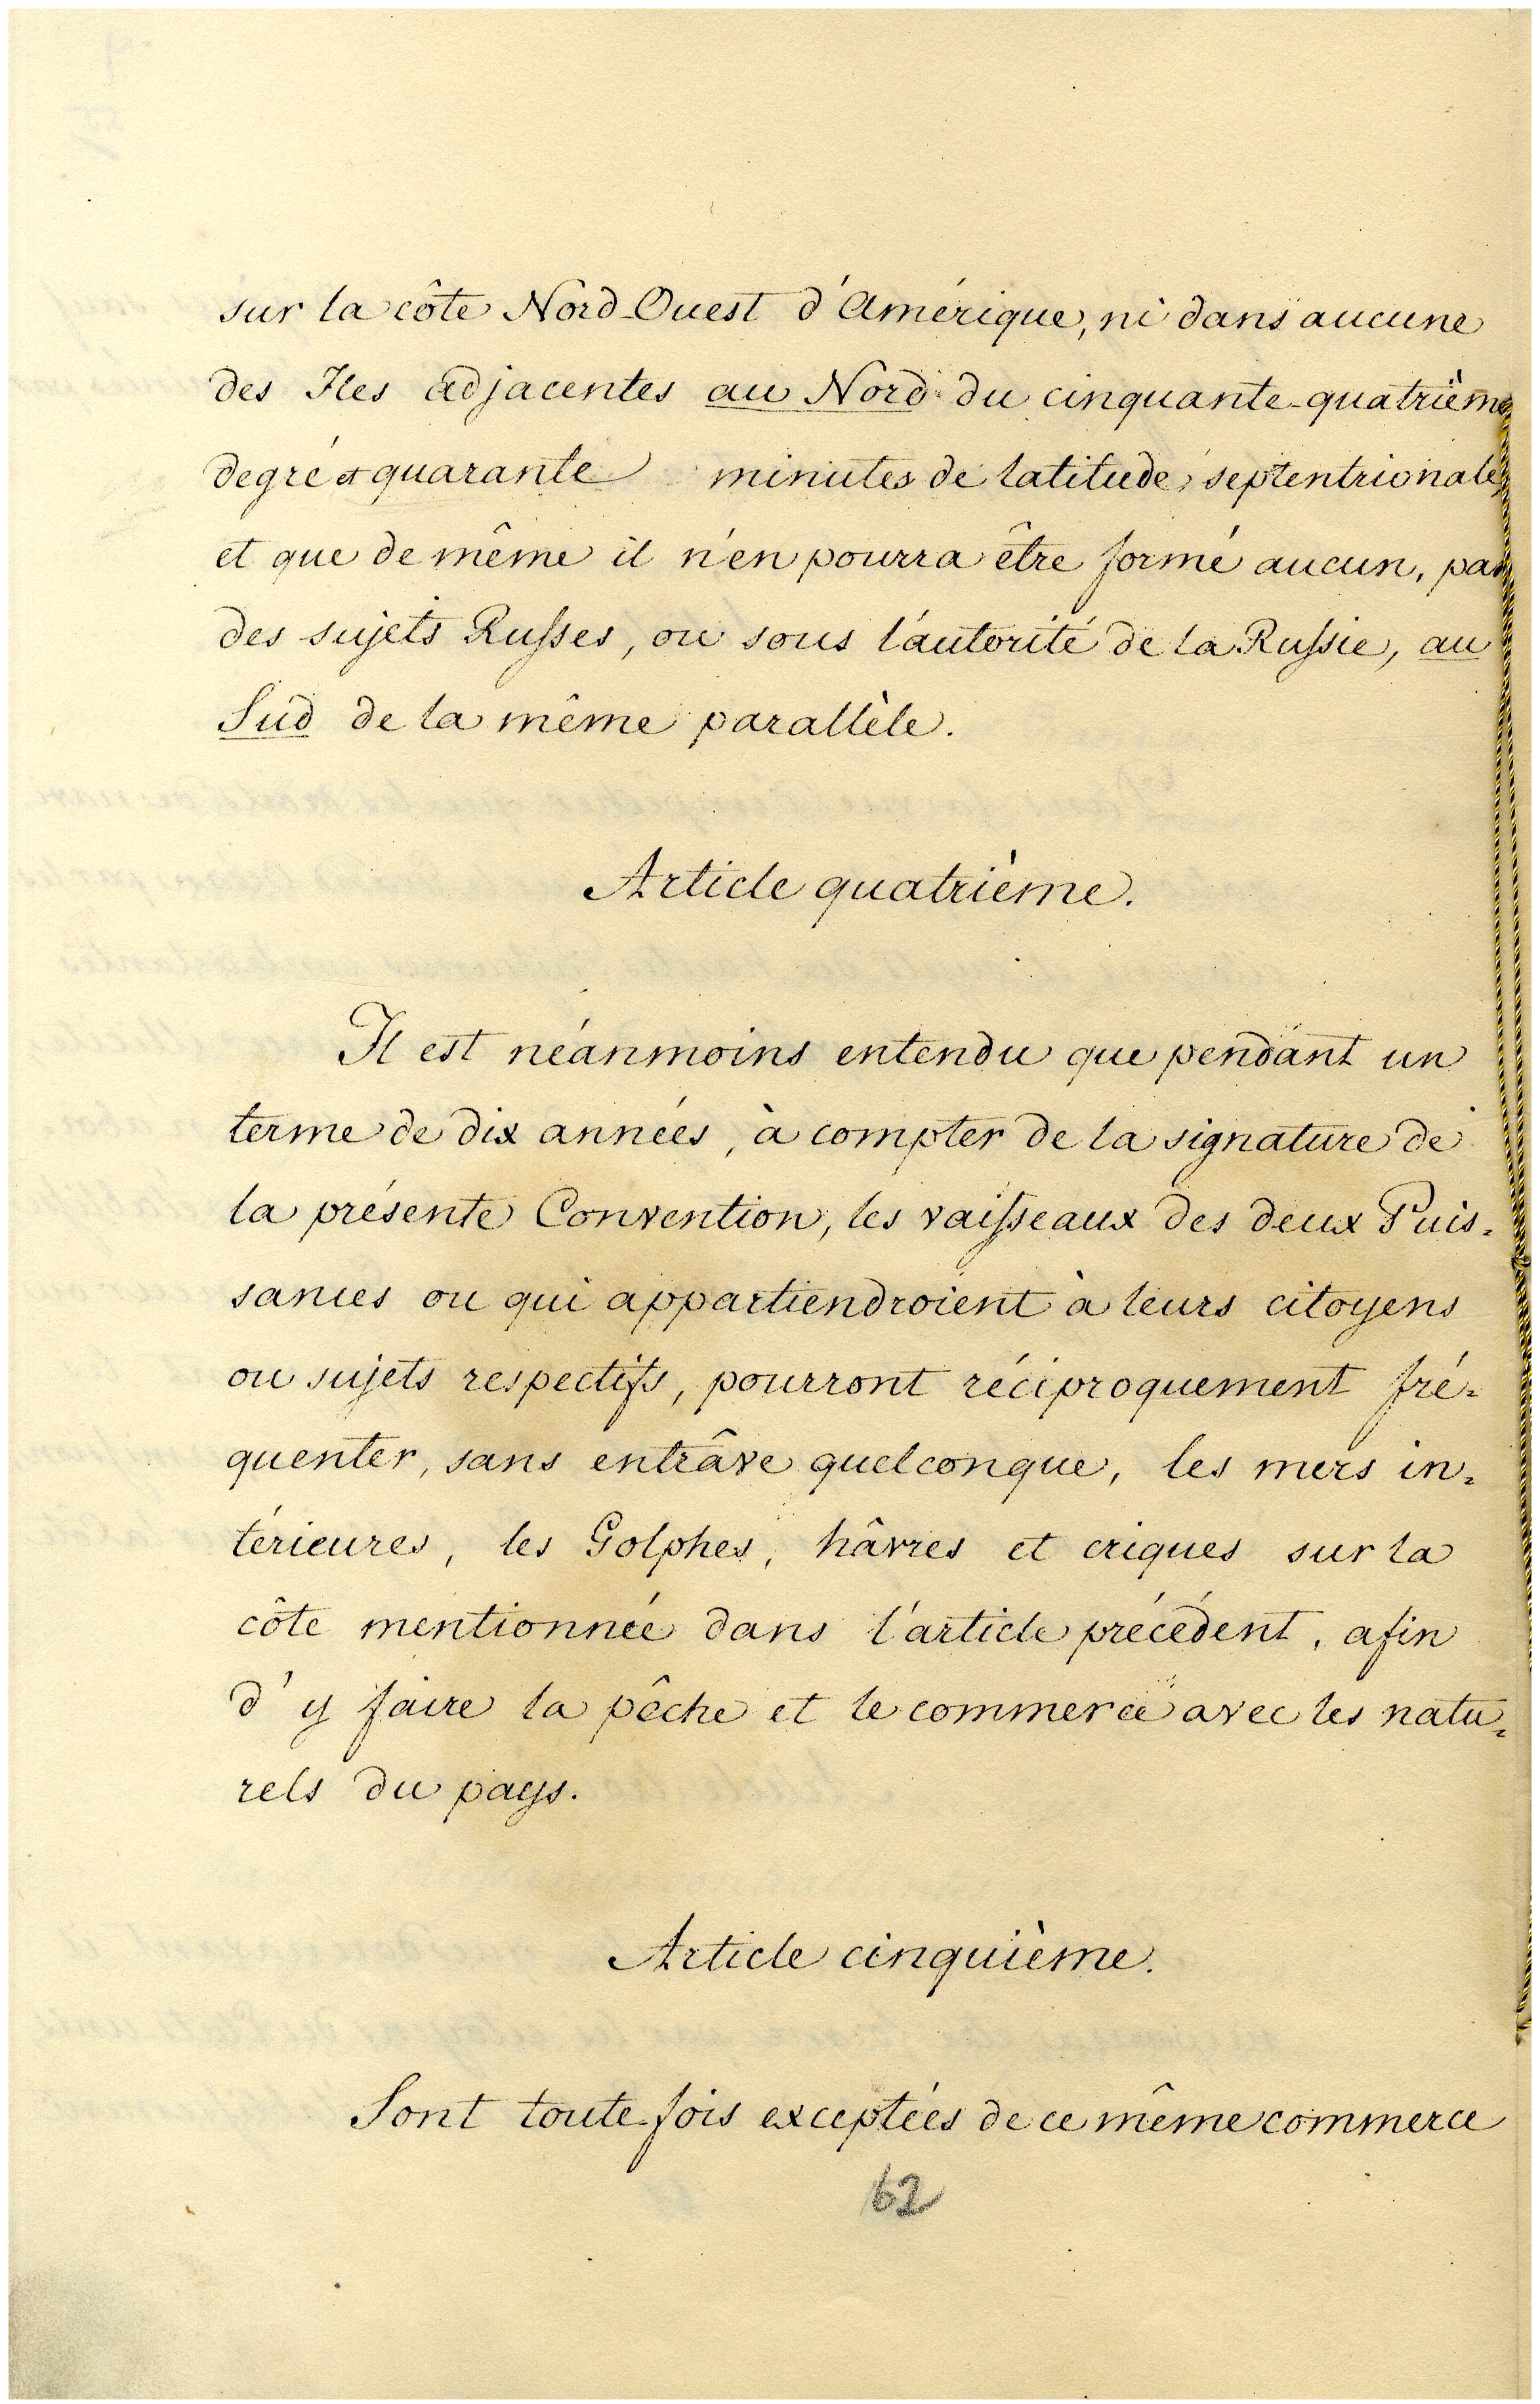 sur la côte Nord-Ouest d'Amérique, ni dans aucune
des Iles adjacentes au Nord du cinquante-quatrième
degré et quarante minutes de latitude septentrionale,
et que de même il n'en pourra être formé aucun, par
des sujets Russes, ou sous l'autorité de la Russie, au
Sud de la même parallèle.
Article quatrième.
Il est néanmoins entendu que pendant un
terme de dix années, à compter de la signature de
la présente Convention, les vaisseaux des deux Puis-
sances ou qui appartiendroient à leurs citoyens
ou sujets respectifs, pourront réciproquement fré-
quenter, sans entrâve quelconque, les mers in-
térieures, les Golphes, hâvres et criques sur la
côte mentionnée dans l'article précédent, afin
d'y faire la pêche et le commerce avec les natu-
rels du pays.
Article cinquième.
Sont toute fois exceptées de ce même commerce
62